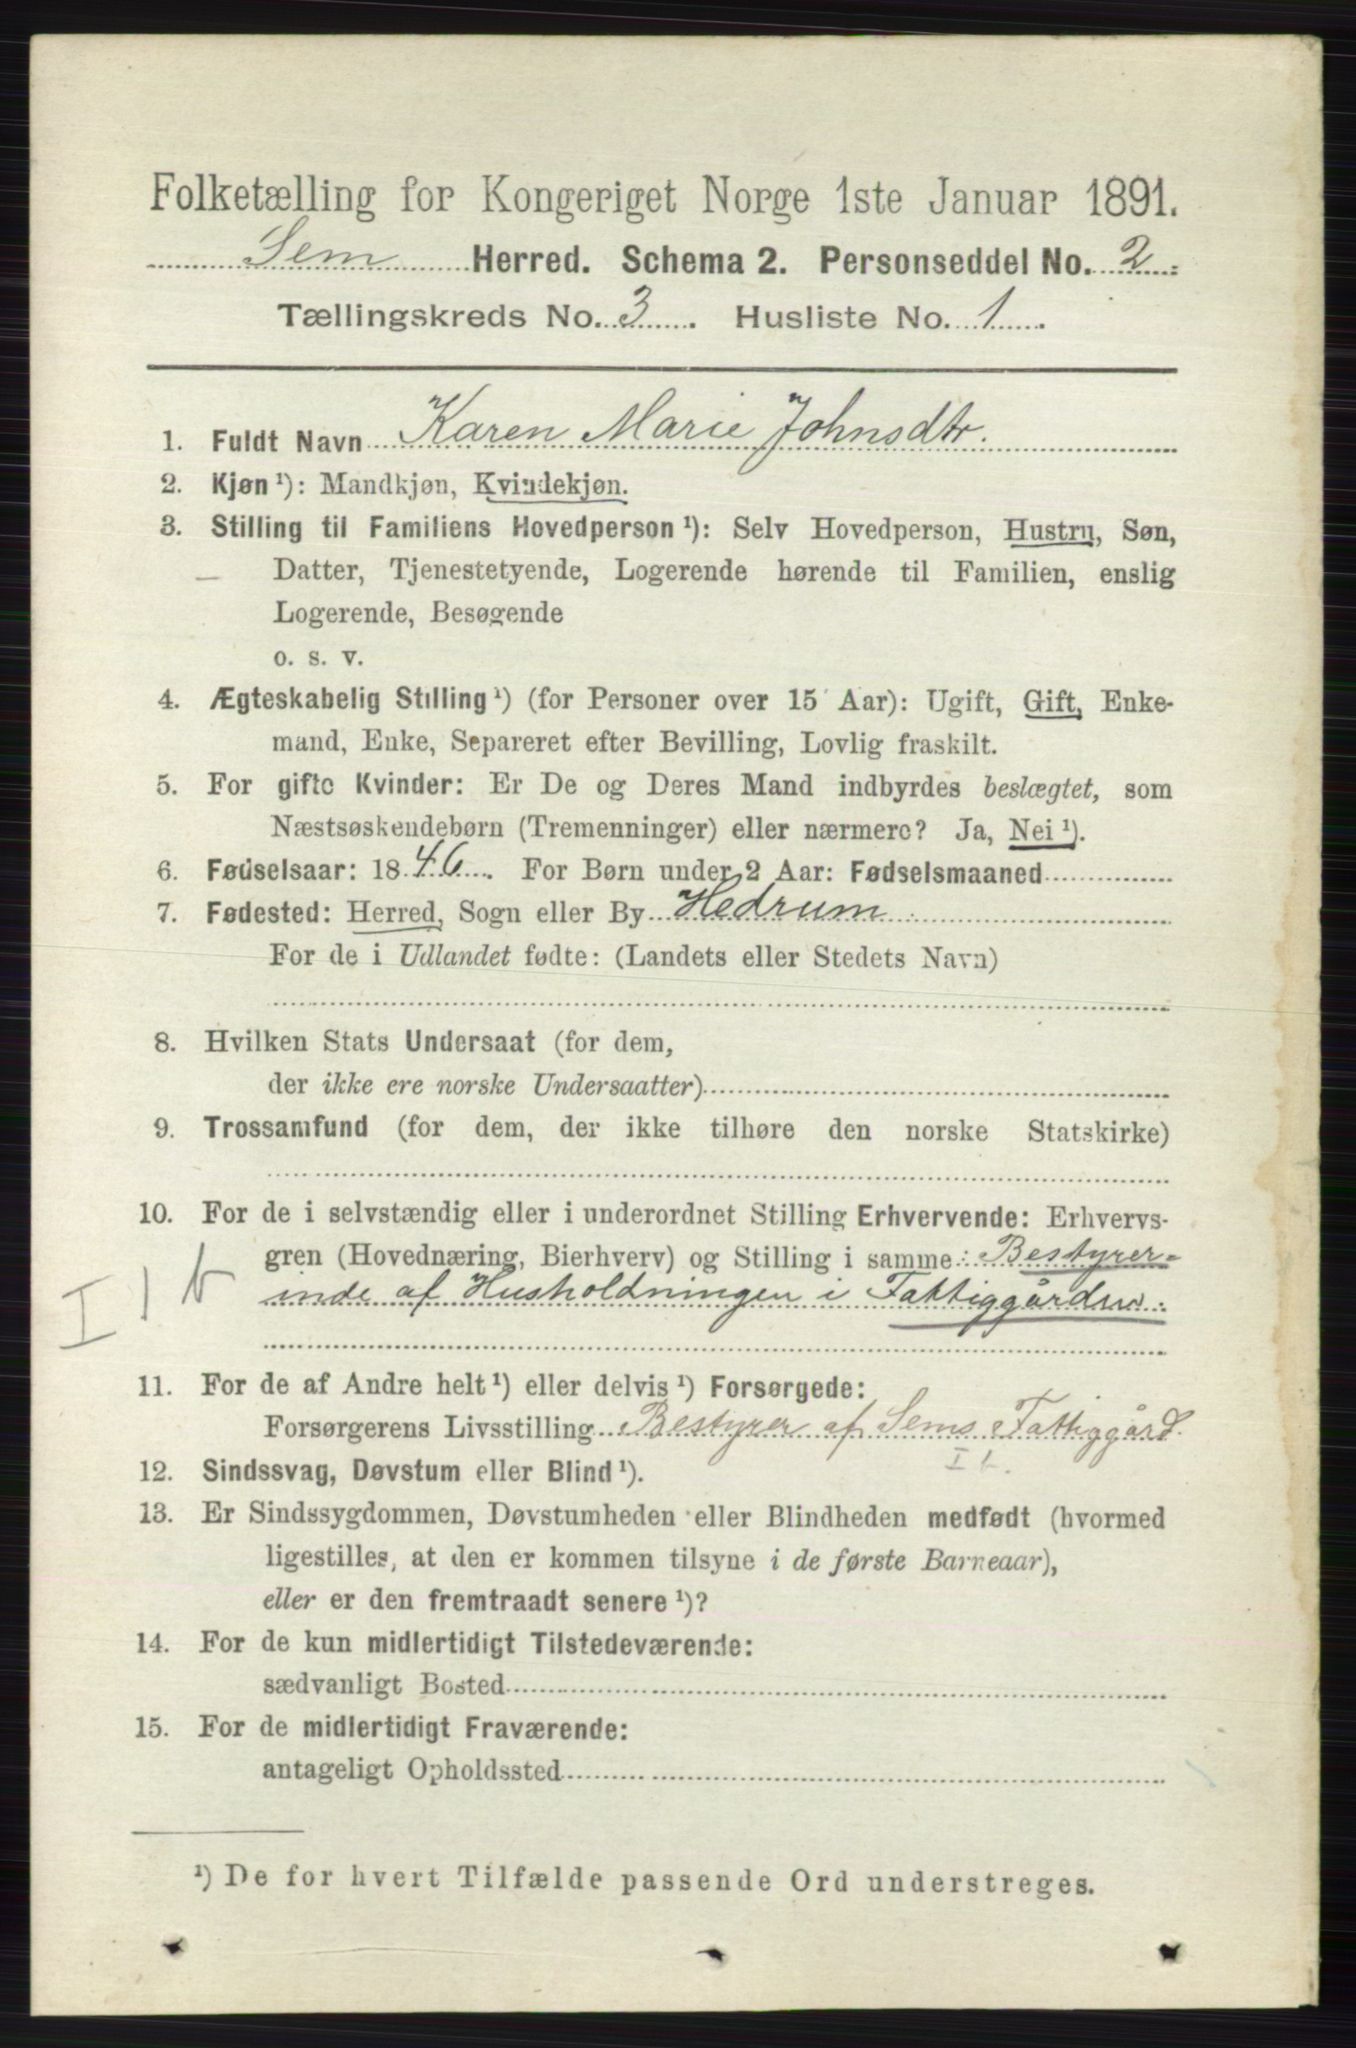 Folketælling for Kongeriget Norge 1ste Januar 1891.
Sem Herred. Schema 2. Personseddel No. 2
Tællingskreds No. 3. Husliste No. 1.
1. Fuldt Navn Karen Marie Johnsdtr.
2. Kjøn ¹): Mandkjøn, Kvindekjøn.
3. Stilling til Familiens Hovedperson ¹): Selv Hovedperson, Hustru, Søn,
Datter, Tjenestetyende, Logerende hørende til Familien, enslig
Logerende, Besøgende
o. s. v.
4. Ægteskabelig Stilling ¹) (for Personer over 15 Aar): Ugift, Gift, Enke-
mand, Enke, Separeret efter Bevilling, Lovlig fraskilt.
5. For gifte Kvinder: Er De og Deres Mand indbyrdes beslægtet, som
Næstsøskendebørn (Tremenninger) eller nærmere? Ja, Nei ¹).
6. Fødselsaar: 1846. For Børn under 2 Aar: Fødselsmaaned
7. Fødested: Herred, Sogn eller By Hedrum
For de i Udlandet fødte: (Landets eller Stedets Navn)
8. Hvilken Stats Undersaat (for dem,
der ikke ere norske Undersaatter)
9. Trossamfund (for dem, der ikke tilhøre den norske Statskirke)
10. For de i selvstændig eller i underordnet Stilling Erhvervende: Erhvervs-
gren (Hovednæring, Bierhverv) og Stilling i samme: Bestyrer-
I 1 b inde af Husholdningen i Fattiggården.
11. For de af Andre helt ¹) eller delvis ¹) Forsørgede:
Forsørgerens Livsstilling Bestyrer af Sems Fattiggård.
I b.
12. Sindssvag, Døvstum eller Blind ¹).
13. Er Sindssygdommen, Døvstumheden eller Blindheden medfødt (hvormed
ligestilles, at den er kommen tilsyne i de første Barneaar),
eller er den fremtraadt senere ¹)?
14. For de kun midlertidigt Tilstedeværende:
sædvanligt Bosted
15. For de midlertidigt Fraværende:
antageligt Opholdssted
¹) De for hvert Tilfælde passende Ord understreges.